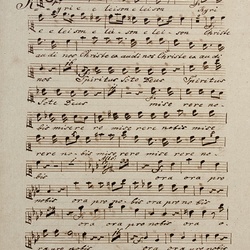 Kyri
e e leison e leison
e e leison e lei-son e leison Christe
audi nos Christe ex audi nos Christe ex audi
nos Spiritus Scte Deus Spiritus
Scte Deus mise rere no.
bis mise re re mise rere nobis mise
rere no bis mise rere mise rere no.
bis ora ora pro
nobis ora pro nobis ora pro no bis
ora ora pro nobis ora o.
ra pro nobis ora ora pro